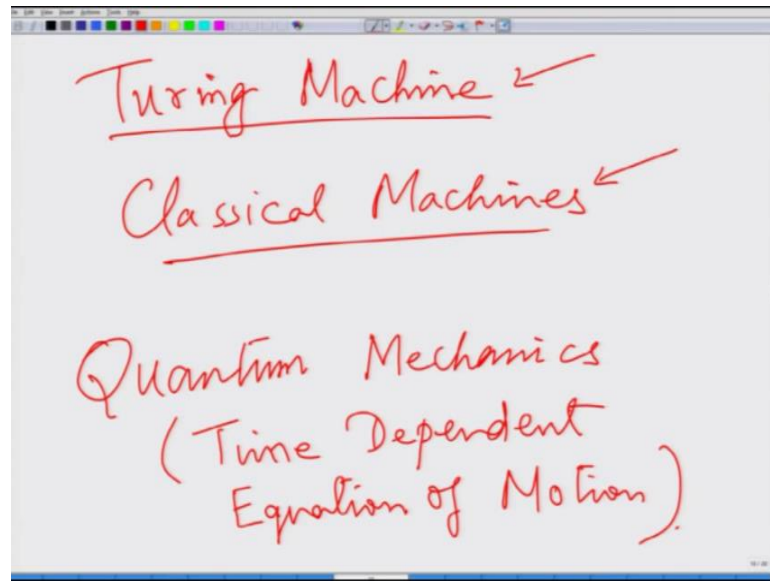 Turing Machine
Classical Machines
Quantum Mechanics
(Time Dependent
Equation of Motion).